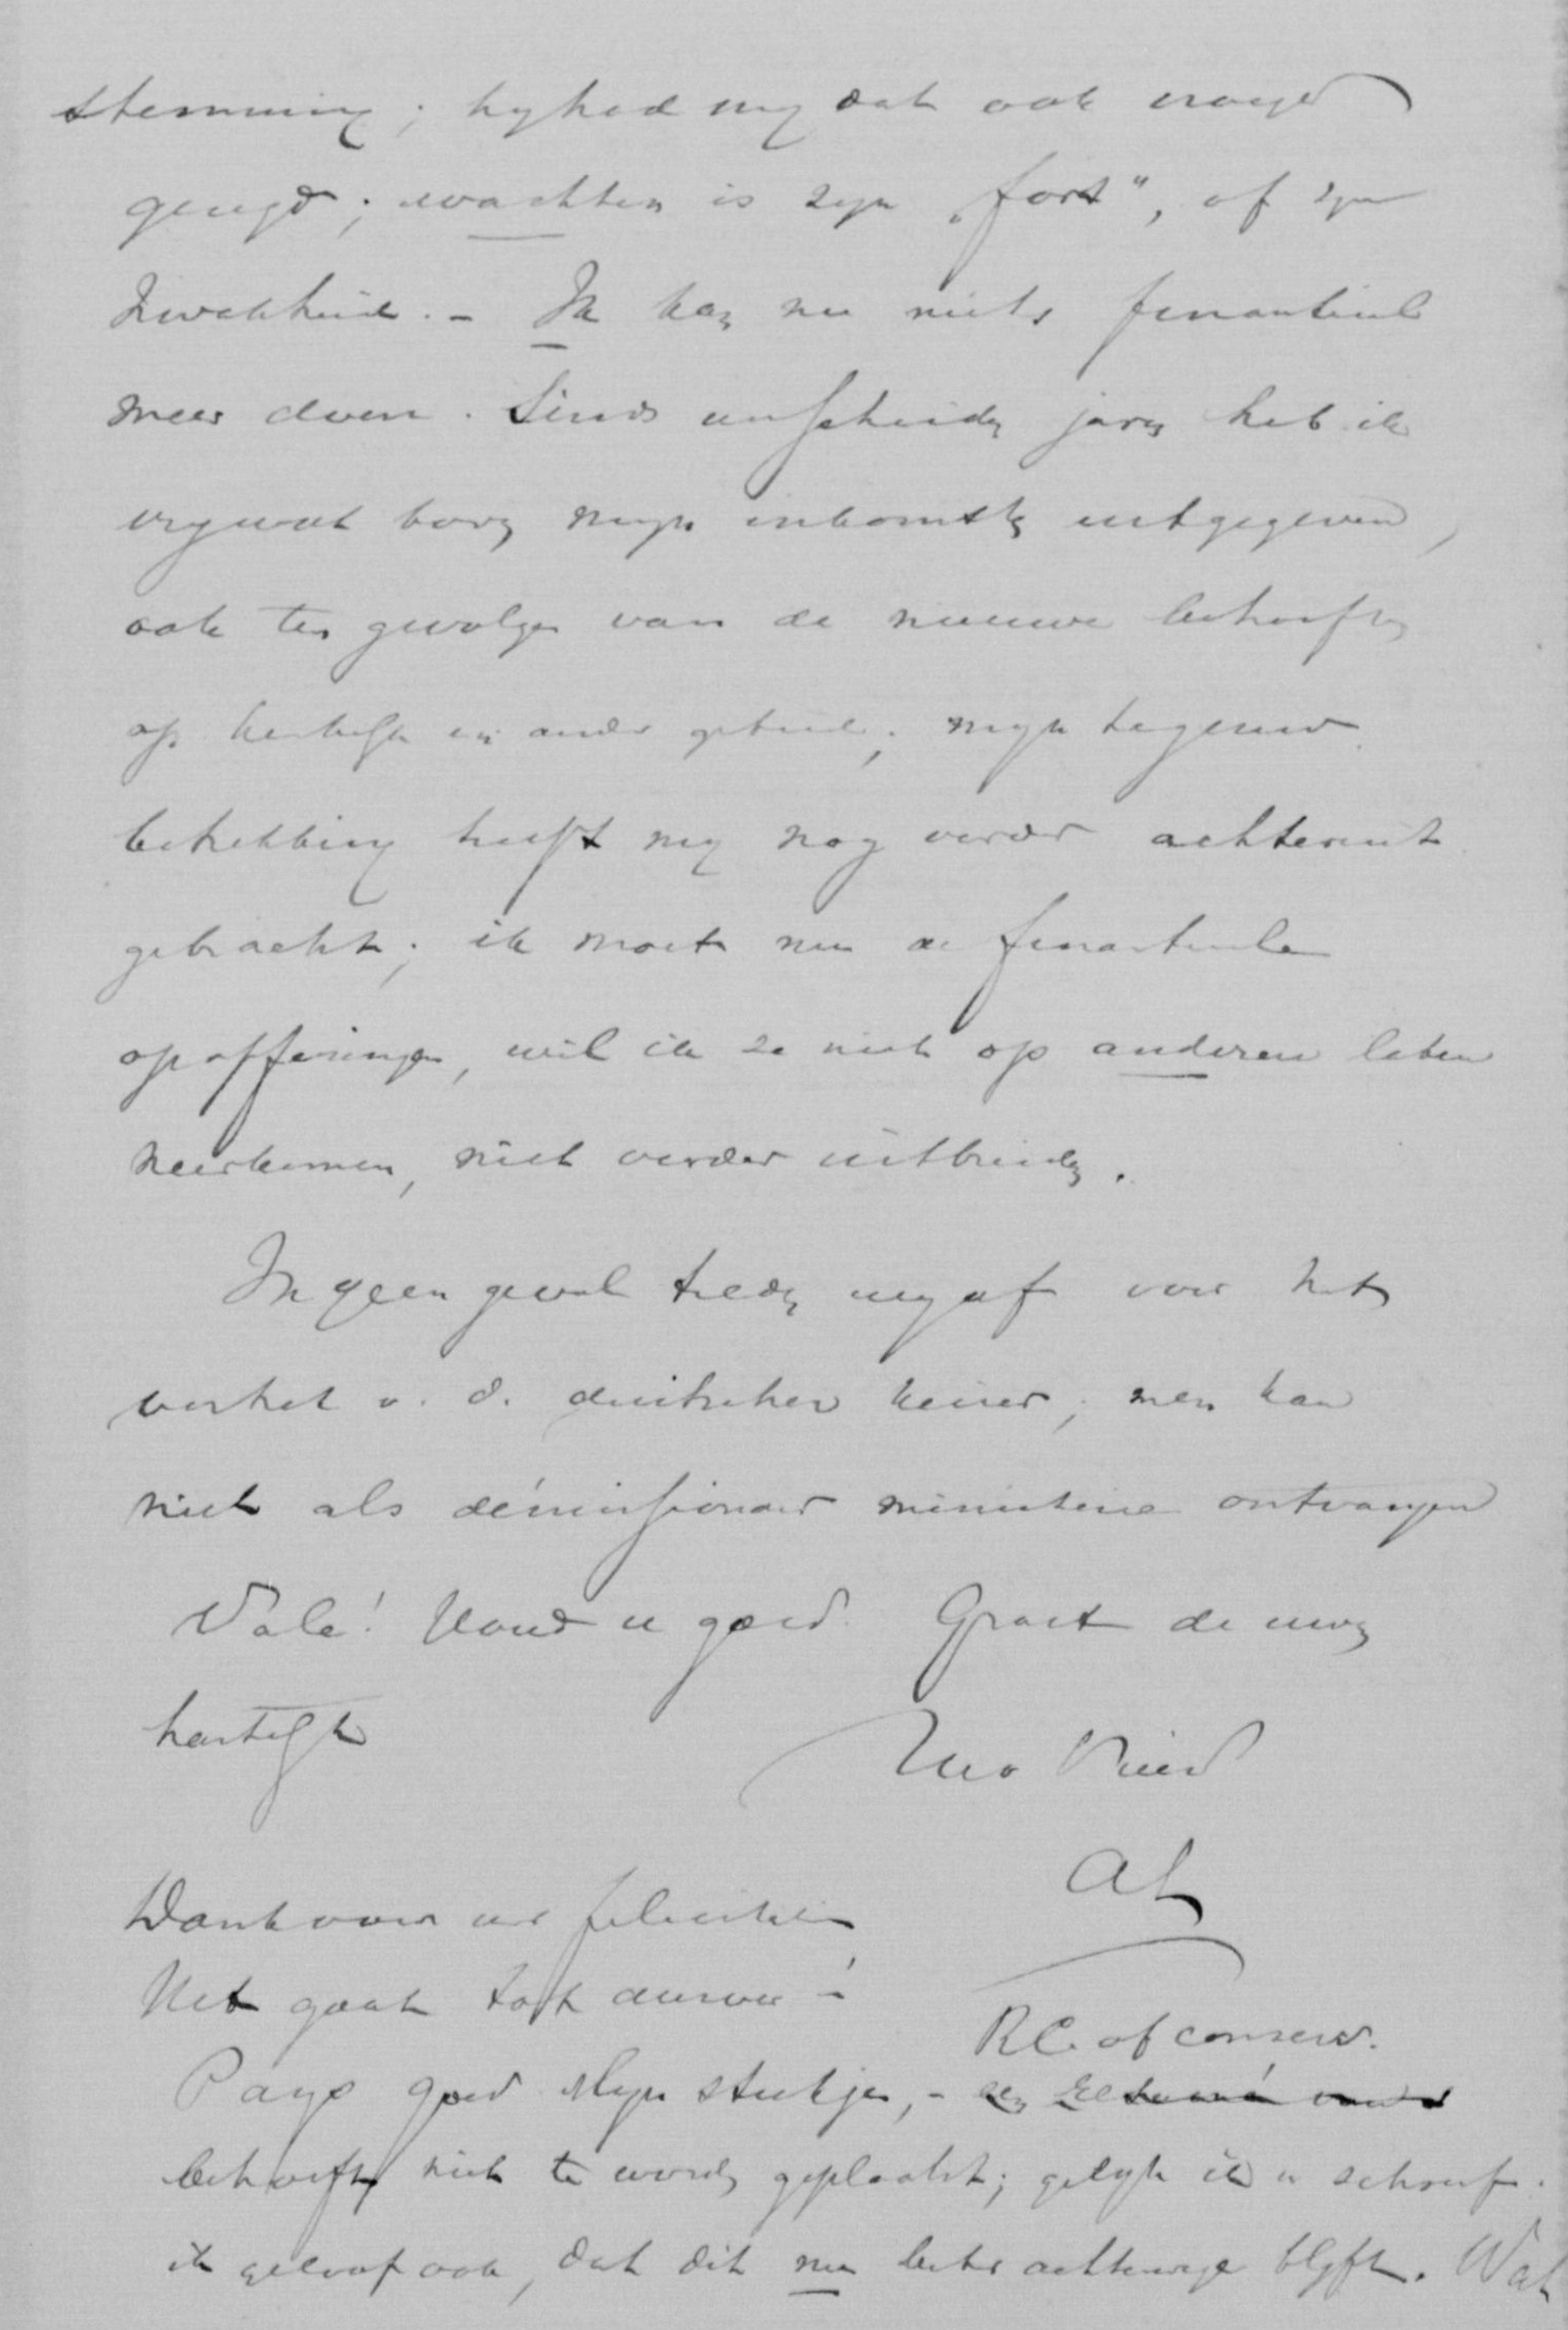 stemming; hy had my dat ook vroeger
gezegd; wachten is zyn „fort", of zyn
zwakheid. – Ik kan nu niets financieel
meer doen. Sinds verscheiden jaren heb ik
vry wat boven myn inkomsten uitgegeven,
ook ten gevolge van de nieuwe behoeften
op kerkelyk en ander gebied; myn tegenw.
betrekking heeft my nog verder achteruit
gebracht; ik moet nu de financieele
opofferingen, wil ik ze niet op anderen laten
neerkomen, niet verder uitbreiden.
In geen geval treden wy af voor het
bezoek v. d. duitschen keizer; men kan
niet als démissionair ministerie ontvangen
Vale! Houd u goed. Groet de uwen
hartelyk
Uw Vriend
AL
Dank voor uw felicitatie
Het gaat tot dusver
R.C. of conserv.
Pays goed. Myn stukje, –
behoeft niet te worden geplaatst; gelyk ik u schreef.
ik geloof ook, dat dit nu beter achterwege blyft. Wat